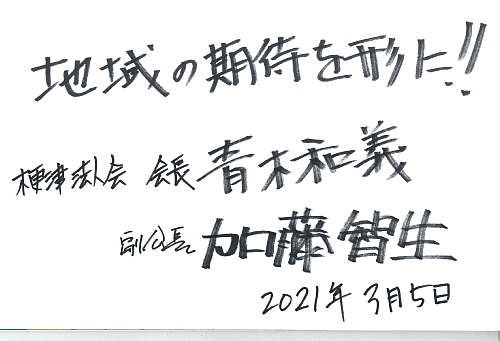 地域の期待を形に!!
梗津法人会 会長 青木和義
副会長 加藤智生
2021年3月5日